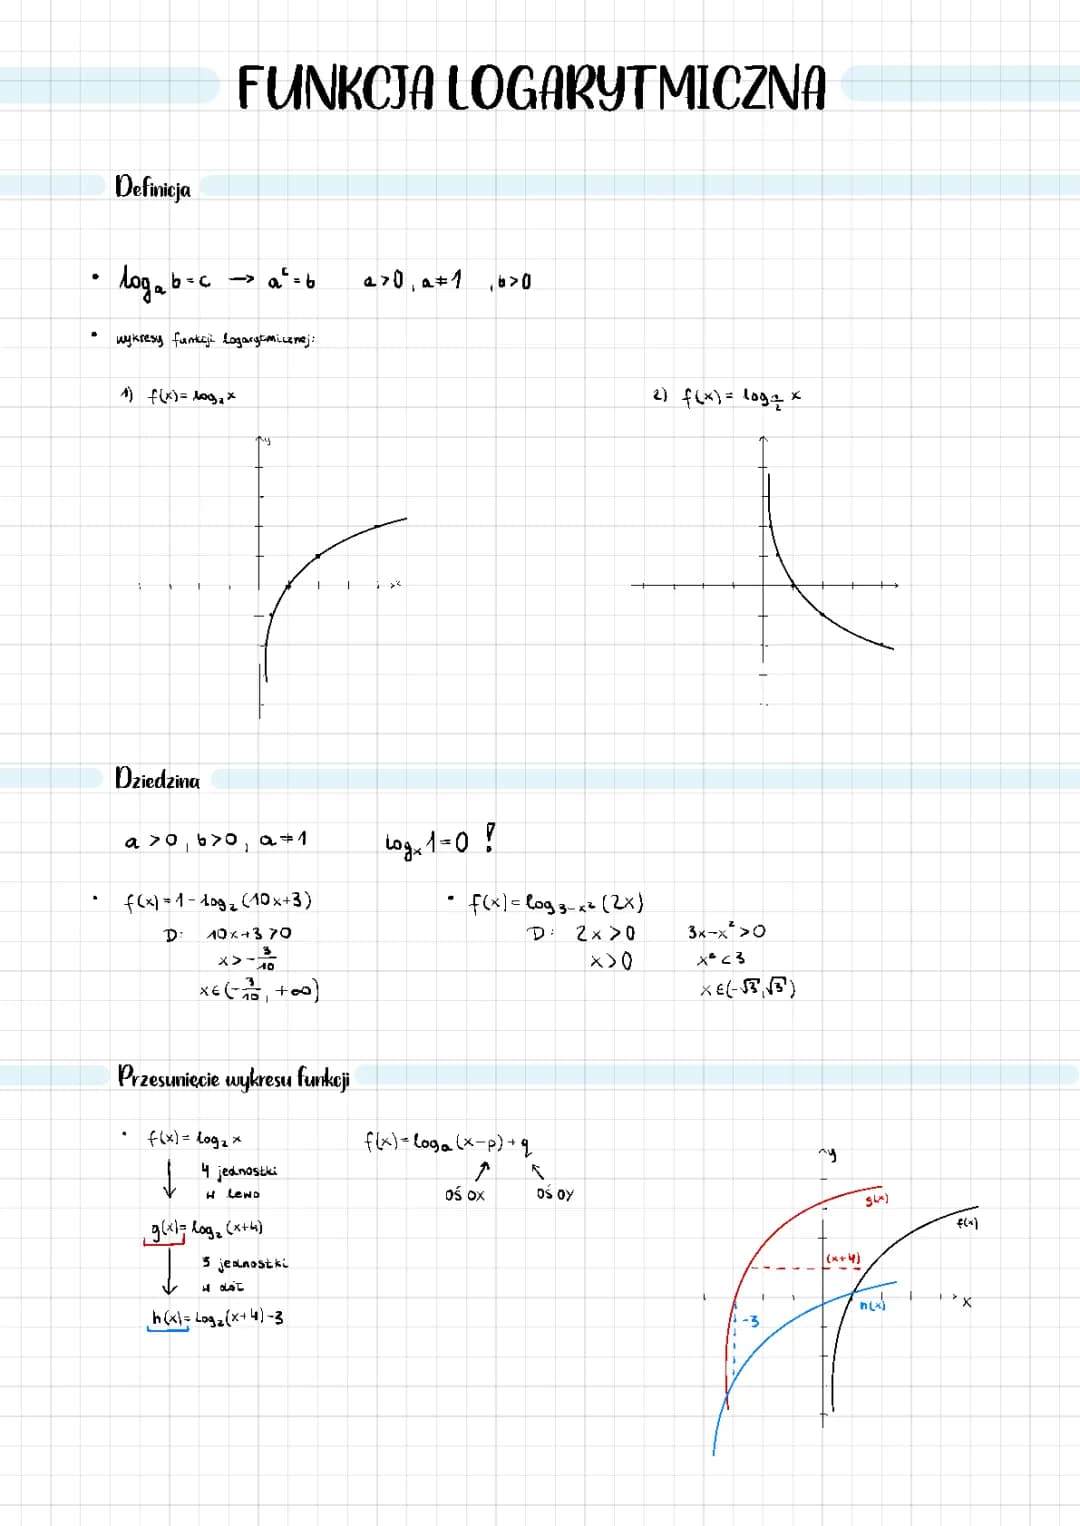 FUNKCJA LOGARYTMICZNA
Definicja
• logₐ b = c → aᶜ = b a>0, a≠1 , b>0
• wykresy funkcji logarytmicznej:
1) f(x) = log₂ x
2) f(x) = log_{1/2} x
y
x
Dziedzina
a >0, b>0, a≠1 logₓ 1=0 !
• f(x) = 1 - log₂ (10x+3)
D: 10x+3>0
x > -3/10
x∈(-3/10, +∞)
• f(x) = log_{3-x²} (2x)
D: 2x >0 3x-x²>0
x>0 x²<3
x∈(-√3,√3)
Przesunięcie wykresu funkcji
• f(x) = log₂ x
↓ 4 jednostki
w lewo
g(x) = log₂ (x+4)
↓ 3 jednostki
w dół
h(x) = log₂(x+4)-3
f(x) = logₐ (x-p)+q
oś OX oś OY
y
g(x)
f(x)
(x+4)
x
h(x)
-3